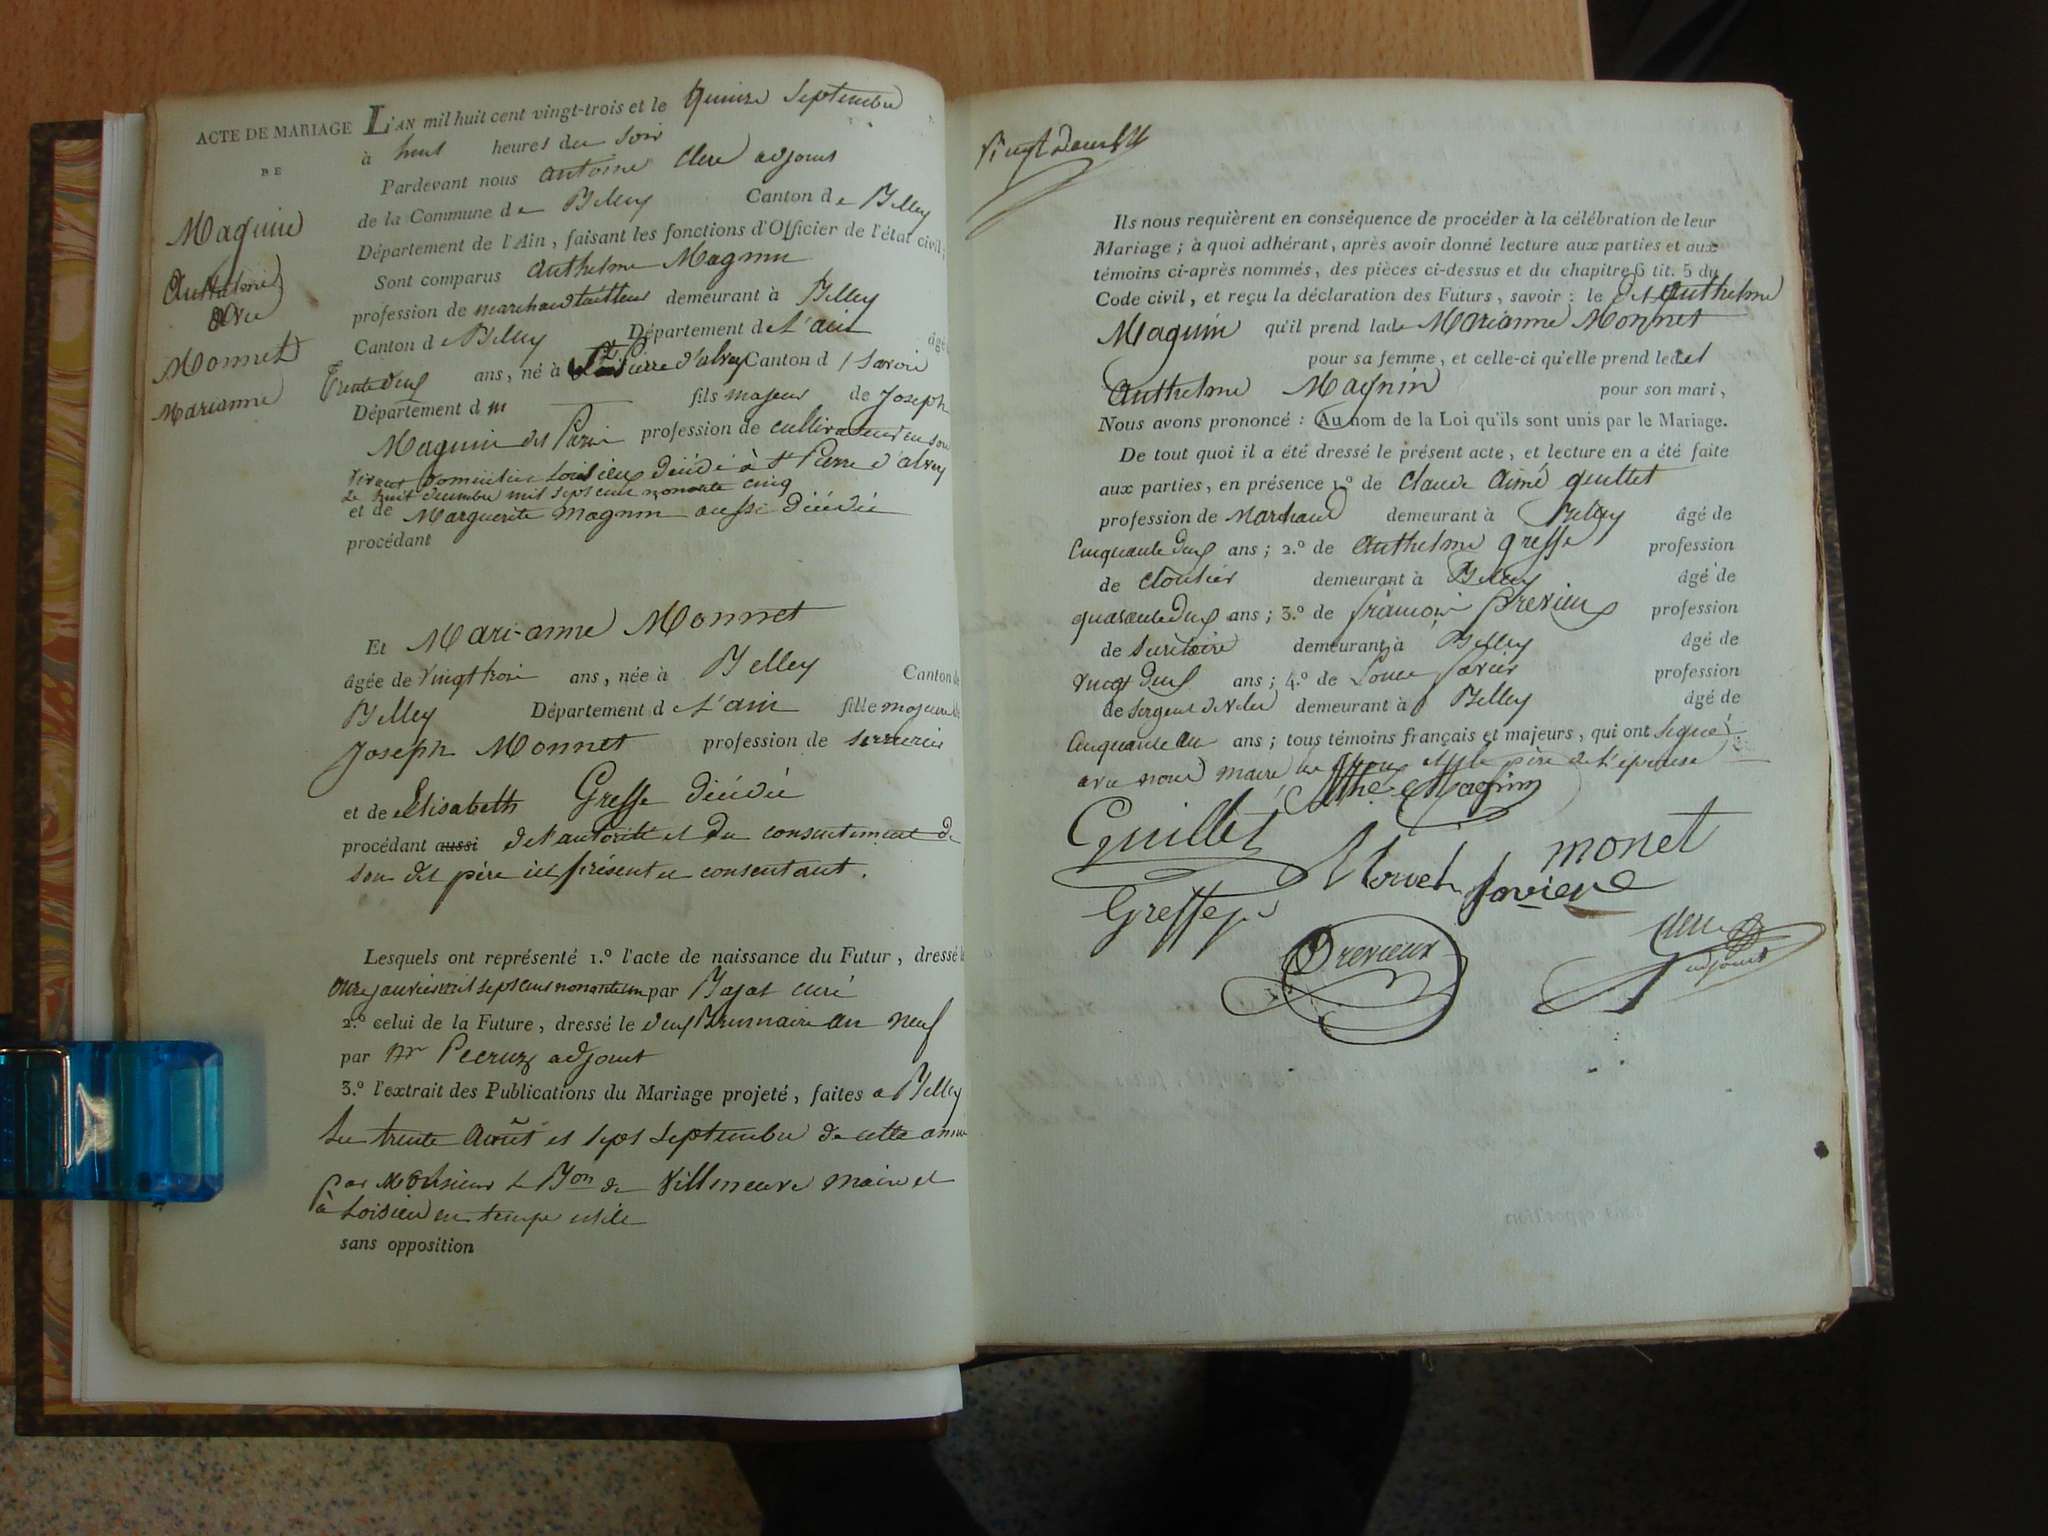 ACTE DE MARIAGE
DE
Magnin
Anthelme
avec
Monnet
Marianne
L'AN mil huit cent vingt-trois et le quinze septembre
à huit heures du soir
Pardevant nous antoine Clerc adjoint
de la Commune de Belley Canton de Belley
Département de l'Ain, faisant les fonctions d'Officier de l'état civil;
Sont comparus anthelme Magnin
profession de marchand tailleur demeurant à Belley
Canton de Belley Département de L'ain âgé
Trente deux ans, né à St Pierre d'alvey Canton d / Savoie
Département d fils majeur de Joseph
Magnin des Parri profession de cultivateur en son
vivant domicilié Loisieu décédé à St Pierre d'alvey
Le huit decembre mil sept cent nonante cinq
et de Marguerite magnin aussi décédée
procédant
Et Mari-anne Monnet
âgée de vingt trois ans, née à Belley Canton de
Belley Département de L'ain fille majeure de
Joseph Monnet profession de serrurier
et de Elisabeth Greffe décédée
procédant aussi de l'autorité et du consentement de
son dit père ici présent et consentant.
Lesquels ont représenté 1.º l'acte de naissance du Futur, dressé le
onze janvier mil sept cent nonante un par Bajat curé
2.º celui de la Future, dressé le deux Brumaire an neuf
par Mr Pecruz adjoint
3.º l'extrait des Publications du Mariage projeté, faites a Belley
Les trente Août et sept septembre de cette année
par Monsieur le Bon de Villeneuve maire et
à Loisieu en temps utile
sans opposition
Vingt deux
Ils nous requièrent en conséquence de procéder à la célébration de leur
Mariage; à quoi adhérant, après avoir donné lecture aux parties et aux
témoins ci-après nommés, des pièces ci-dessus et du chapitre 6 tit. 5 du
Code civil, et reçu la déclaration des Futurs, savoir: le dit Anthelme
Magnin qu'il prend lade Marianne Monnet
pour sa femme, et celle-ci qu'elle prend ledit
Anthelme Magnin pour son mari,
Nous avons prononcé: Au nom de la Loi qu'ils sont unis par le Mariage.
De tout quoi il a été dressé le présent acte, et lecture en a été faite
aux parties, en présence 1.º de Claude Aimé Guillet
profession de Marchand demeurant à Belley âgé de
Cinquante deux ans; 2.º de Anthelme Greffe profession
de Cloutier demeurant à Belley âgé de
quarante deux ans; 3.º de françois Drevieux profession
de secrétaire demeurant à Belley âgé de
vingt deux ans; 4.º de Louis Javier profession
de Sergent de Ville demeurant à Belley âgé de
Cinquante un ans; tous témoins français et majeurs, qui ont signé
avec nous maire et le père de l'épouse
Athe Magnin
Cguillet
monet
Greffe
Drevieux
Clerc
adjoint